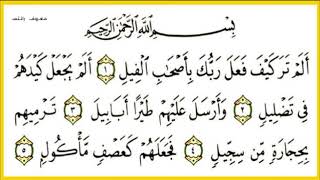 بِسْمِ اللَّهِ الرَّحْمَٰنِ الرَّحِيمِ
أَلَمْ تَرَ كَيْفَ فَعَلَ رَبُّكَ بِأَصْحَابِ الْفِيلِ ١ أَلَمْ يَجْعَلْ كَيْدَهُمْ
فِي تَضْلِيلٍ ٢ وَأَرْسَلَ عَلَيْهِمْ طَيْرًا أَبَابِيلَ ٣ تَرْمِيهِمْ
بِحِجَارَةٍ مِّن سِجِّيلٍ ٤ فَجَعَلَهُمْ كَعَصْفٍ مَّأْكُولٍ ٥